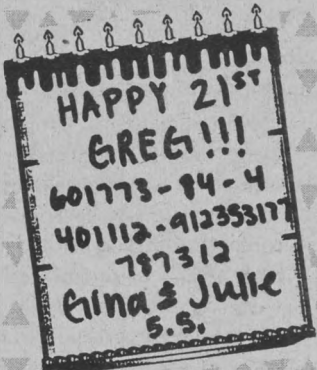 HAPPY 21ST
GREG!!!
601773-84-4
401112-912353177
787312
Gina & Julie
S.S.